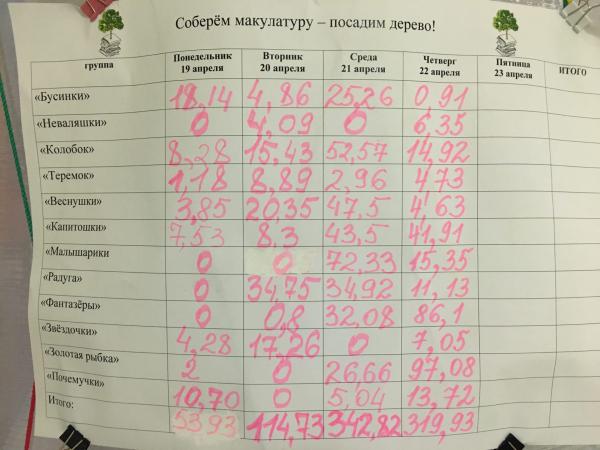 Соберём макулатуру – посадим дерево!
группа Понедельник 19 апреля Вторник 20 апреля Среда 21 апреля Четверг 22 апреля Пятница 23 апреля ИТОГО
«Бусинки» 18,14 4,86 25,26 0,91
«Неваляшки» 0 4,09 0 6,35
«Колобок» 8,28 15,43 52,57 14,92
«Теремок» 1,18 8,89 2,96 4,73
«Веснушки» 3,85 20,35 47,5 4,63
«Капитошки» 7,53 8,3 43,5 41,91
«Малышарики 0 0 72,33 15,35
«Радуга» 0 34,75 34,92 11,13
«Фантазёры» 0 0,8 32,08 86,1
«Звёздочки» 4,28 17,26 0 7,05
«Золотая рыбка» 2 0 26,66 97,08
«Почемучки» 10,70 0 5,04 13,72
Итого: 53,93 114,73 342,82 319,93